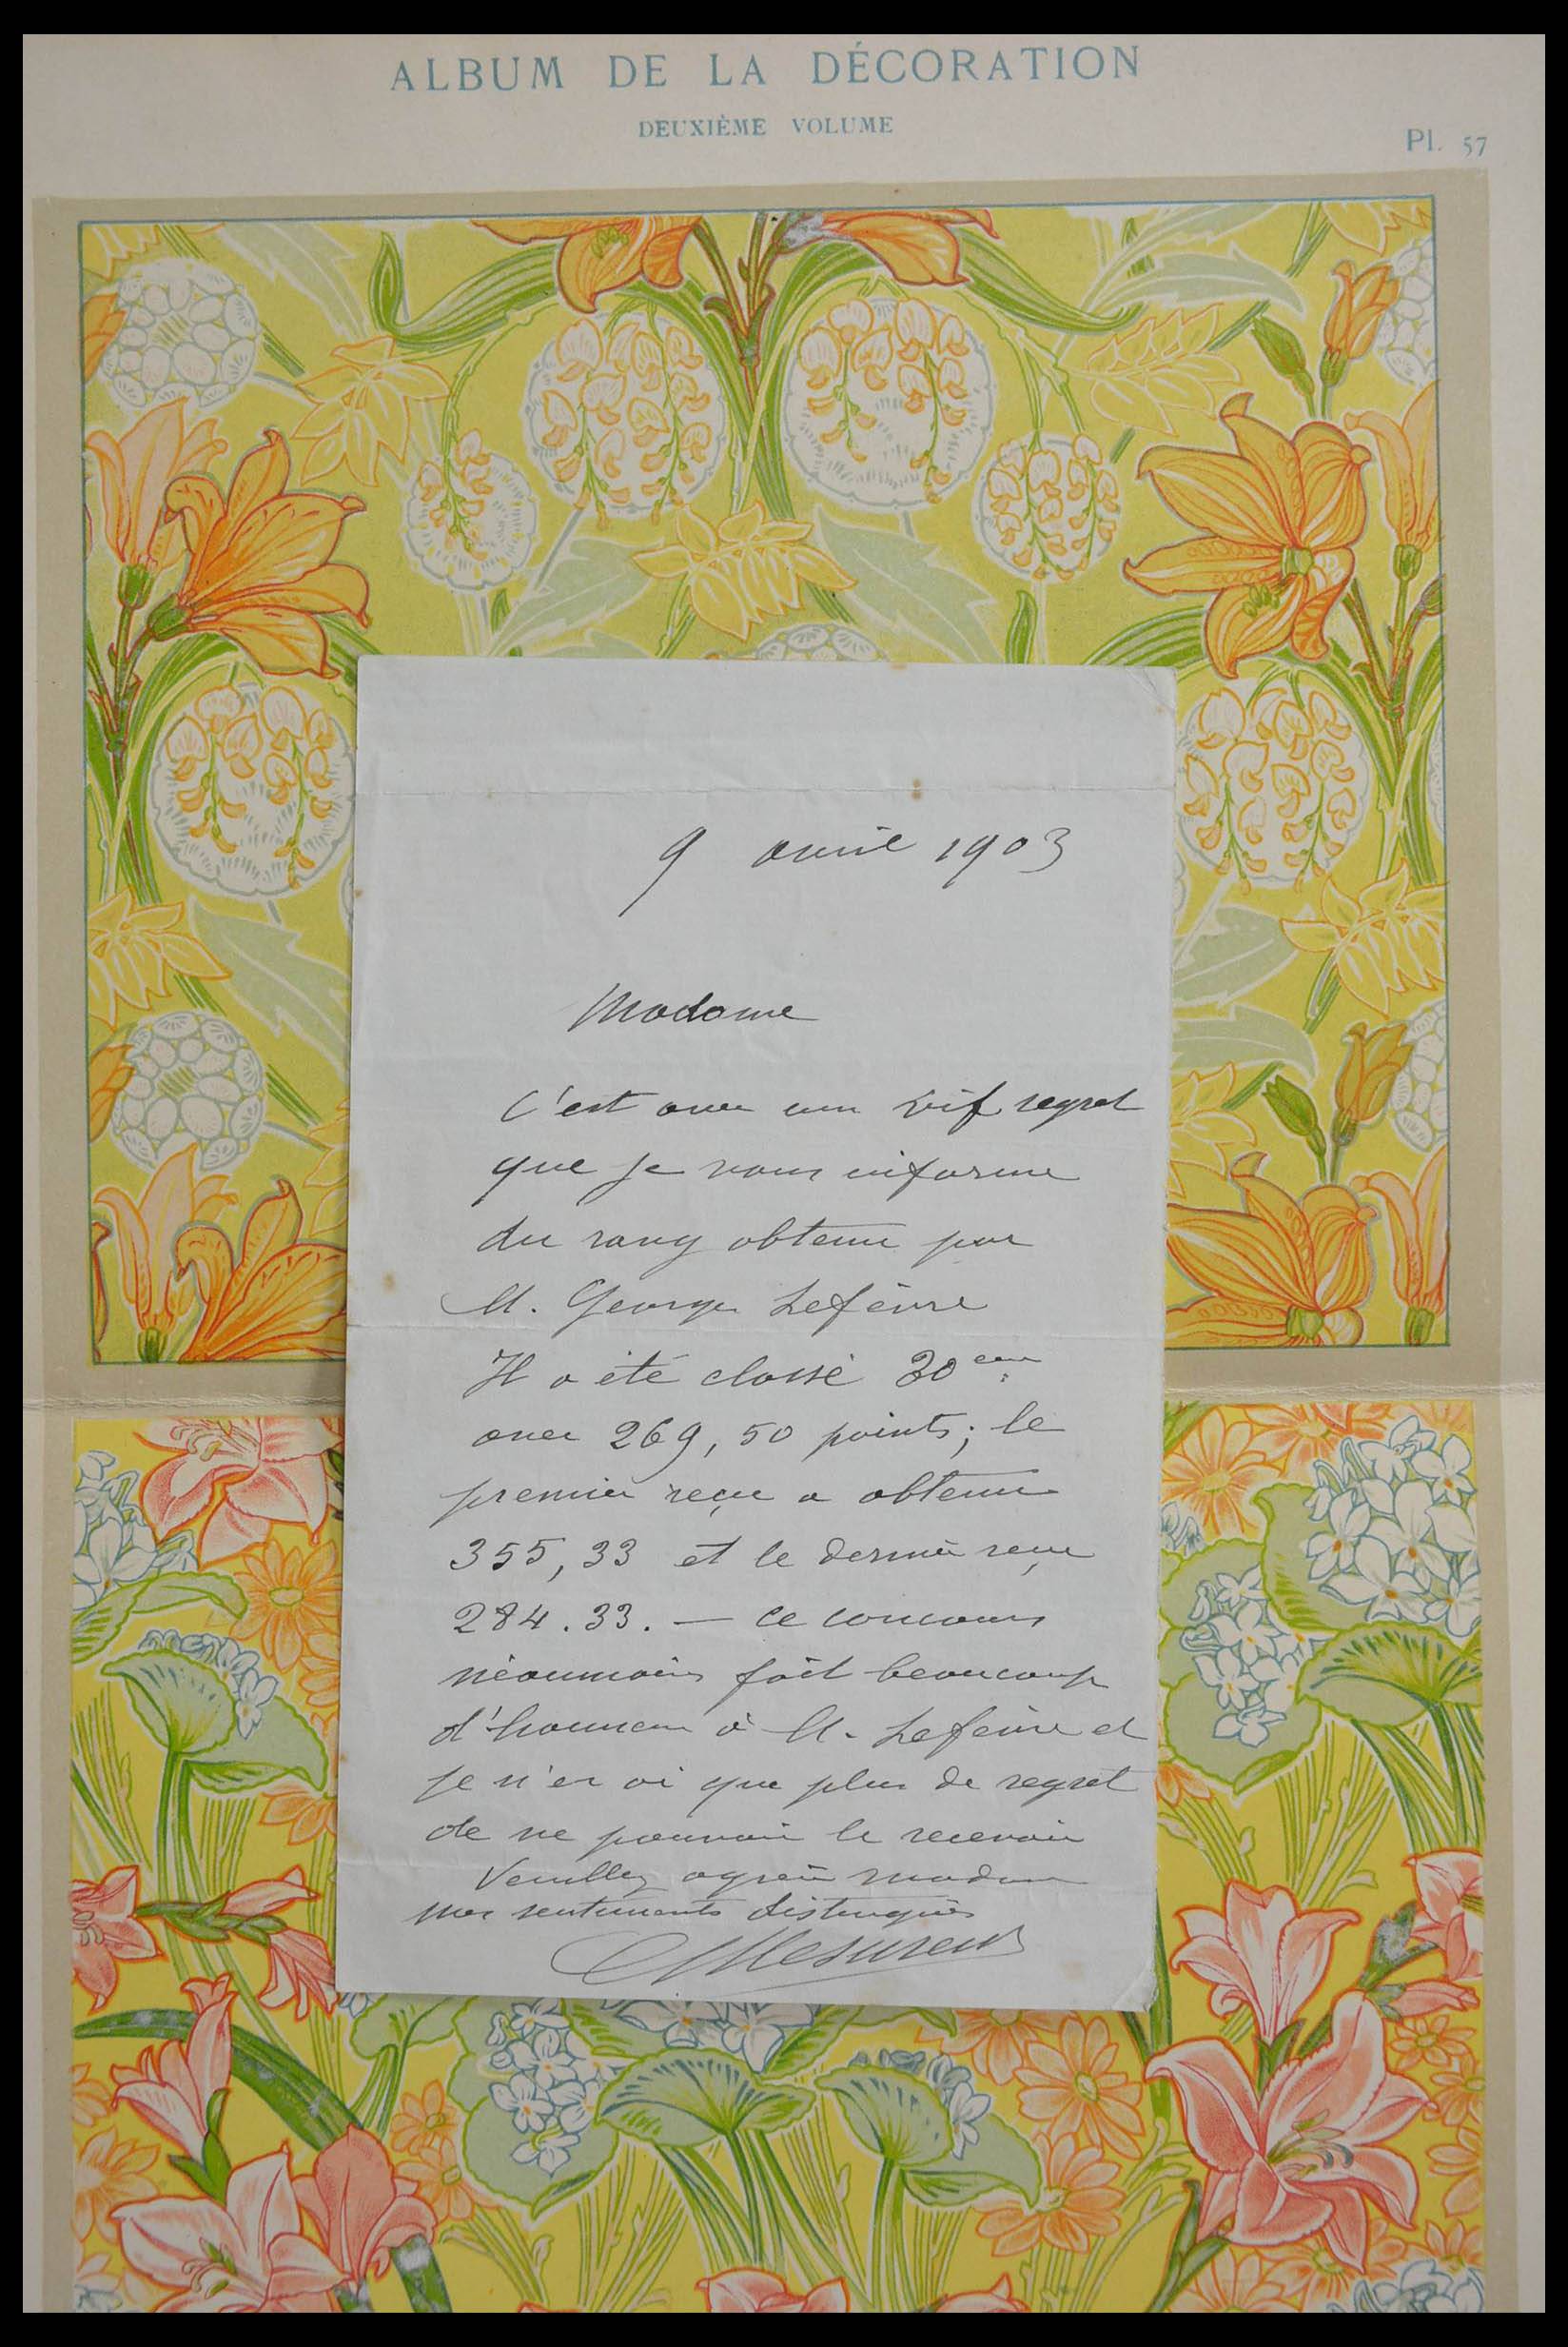 ALBUM DE LA DÉCORATION
DEUXIÈME VOLUME
Pl. 57
9 avril 1903
Madame
C'est avec un vif regret
que je vous informe
du rang obtenu par
M. Georges Lefèvre
Il a été classé 30eme
avec 269,50 points; le
premier reçu a obtenu
355,33 et le dernier reçu
284.33. — Ce concours
néanmoins fait beaucoup
d'honneur à M. Lefèvre et
je n'en ai que plus de regret
de ne pouvoir le recevoir
Veuillez agréer madame
mes sentiments distingués
Mesureur